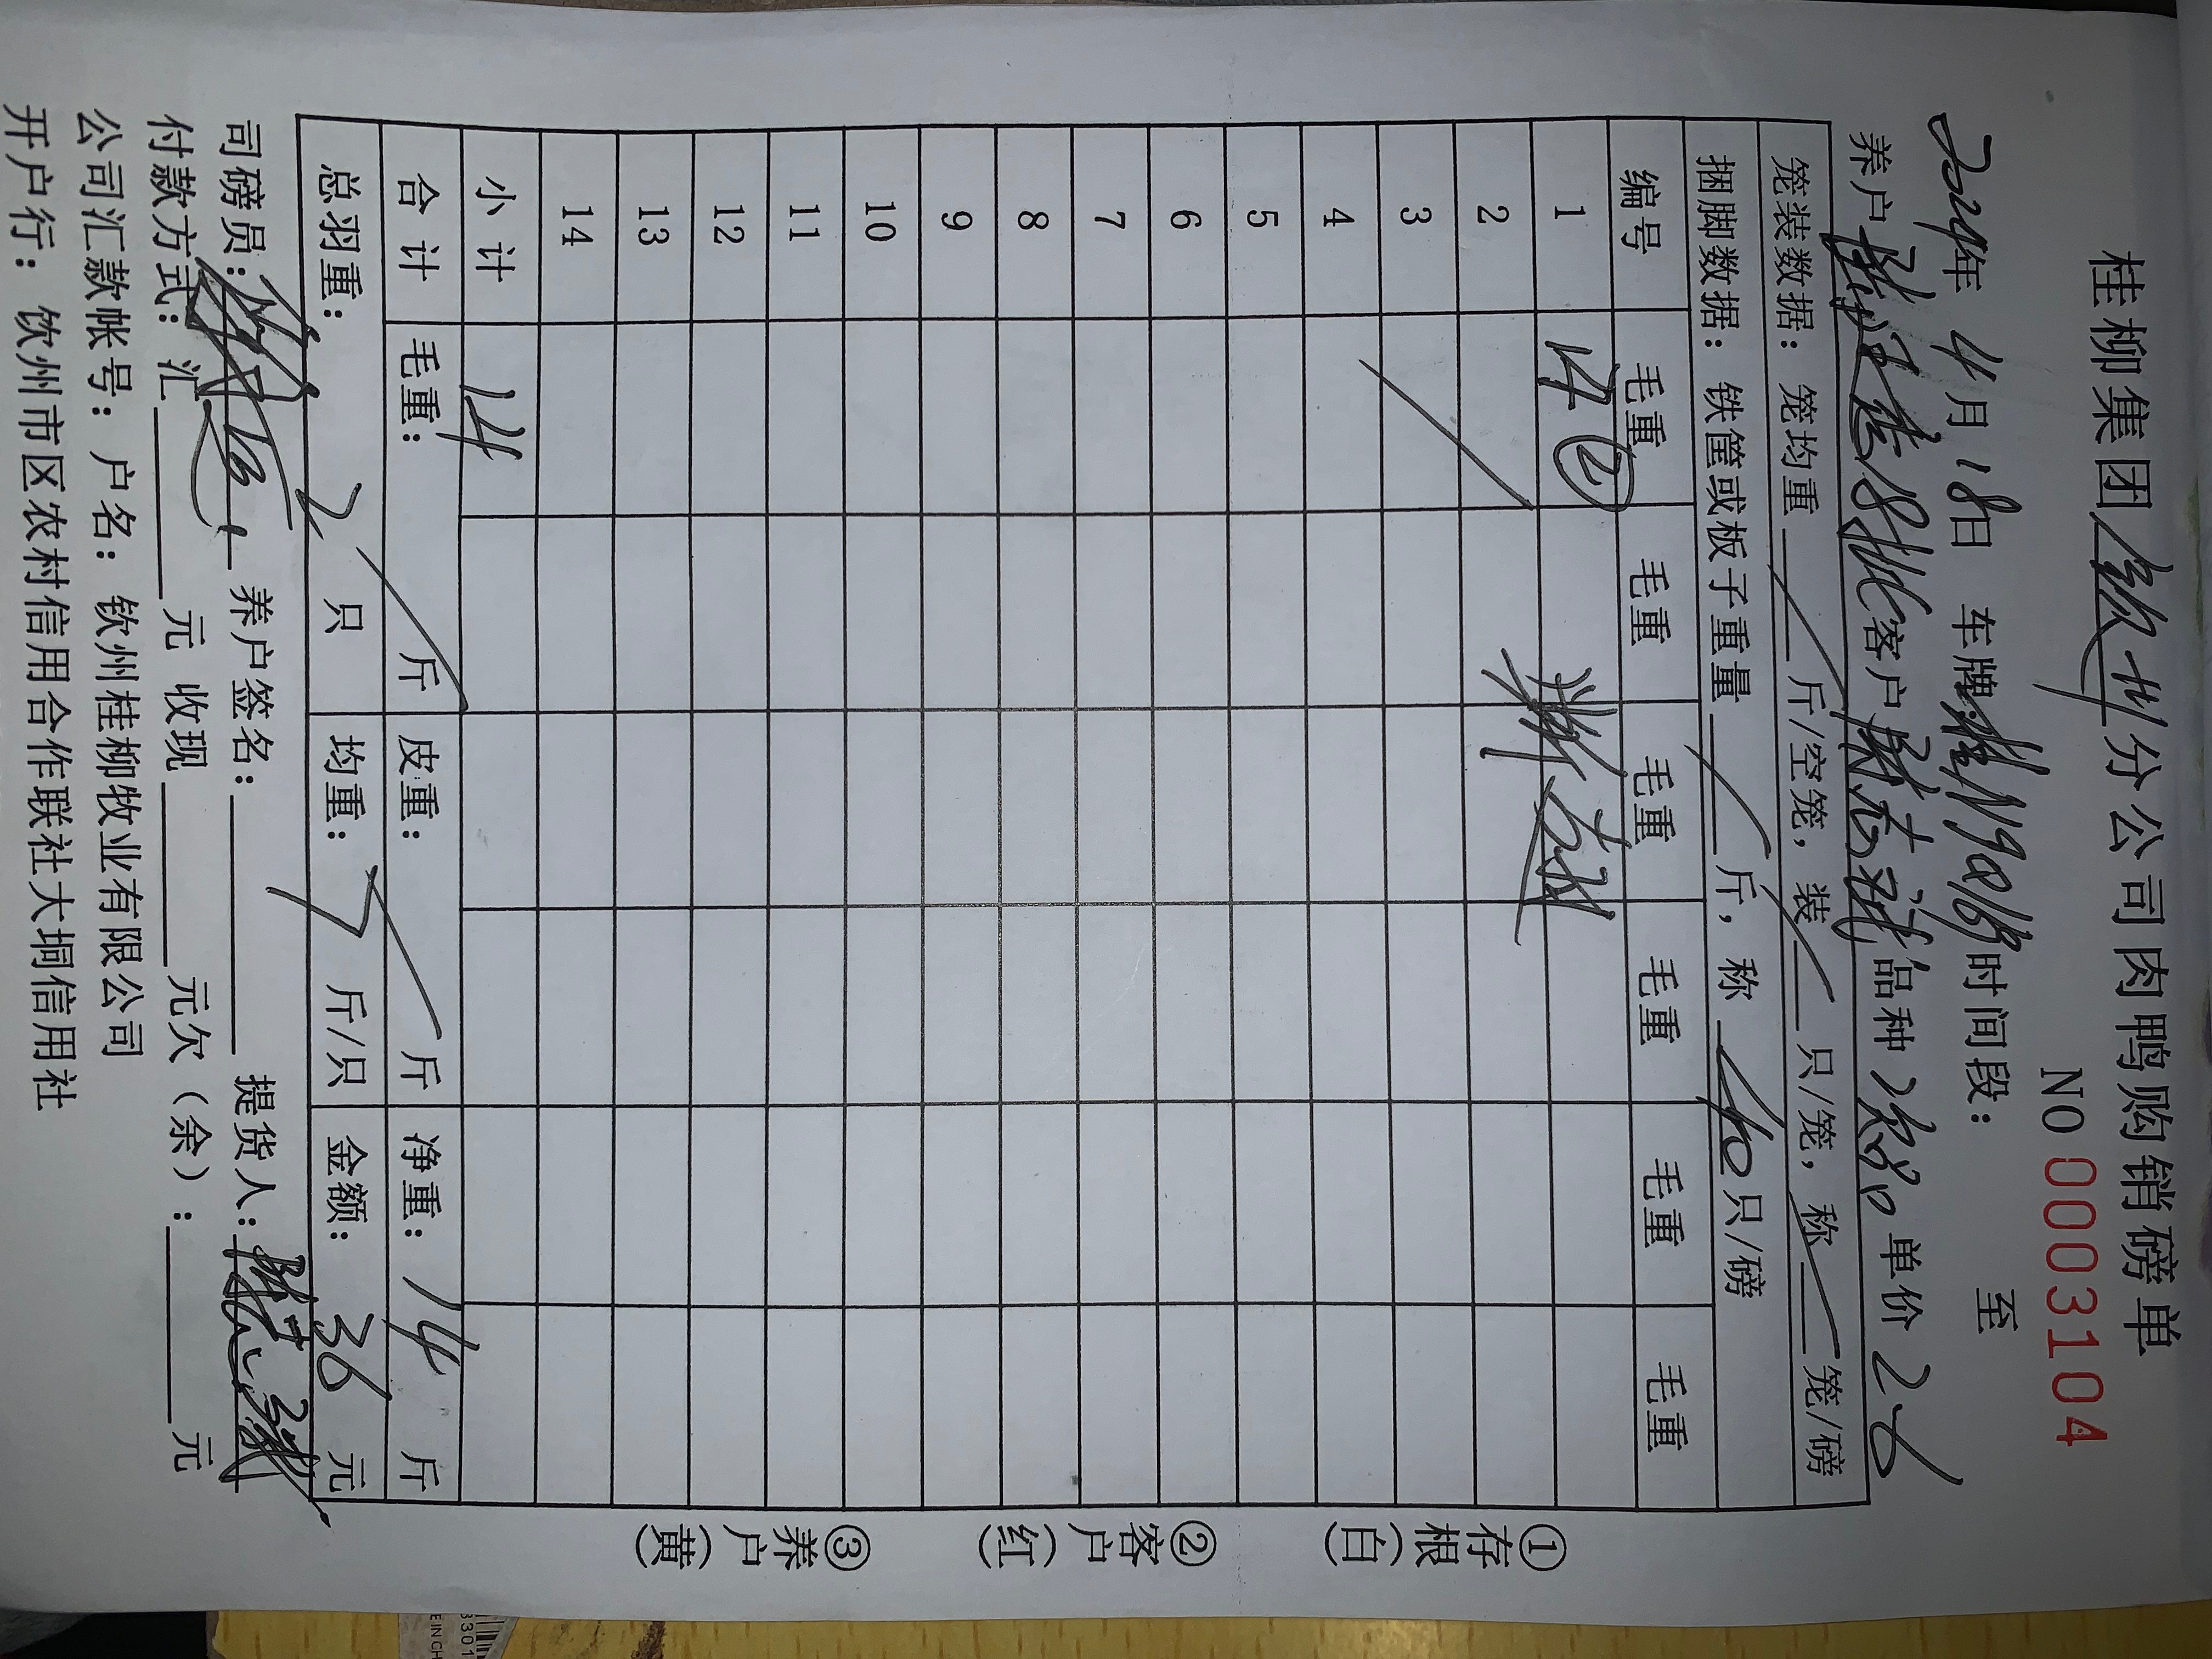 桂柳集团钦州分公司肉鸭购销磅单
NO 0003104
2024年 4月 18日 车牌 N19816 时间段： 至
养户 客户 陈志斌 品种 次品 单价 2.6
笼装数据：笼均重 斤/空笼，装 只/笼，称 笼/磅
捆脚数据：铁筐或板子重量 斤，称 10 只/磅
编号 毛重 毛重 毛重 毛重 毛重 毛重
1 14 ②
2
3
4
5
6
7
8
9
10
11
12
13
14
小计 14
合计 毛重： 斤 皮重： 斤 净重：14 斤
总羽重：2 只 均重：7 斤/只 金额：36 元
司磅员： 养户签名： 提货人：陈志斌
付款方式：汇 元 收现 元欠（余）： 元
公司汇款帐号：户名：钦州桂柳牧业有限公司
开户行：钦州市区农村信用合作联社大垌信用社
①存根（白）
②客户（红）
③养户（黄）